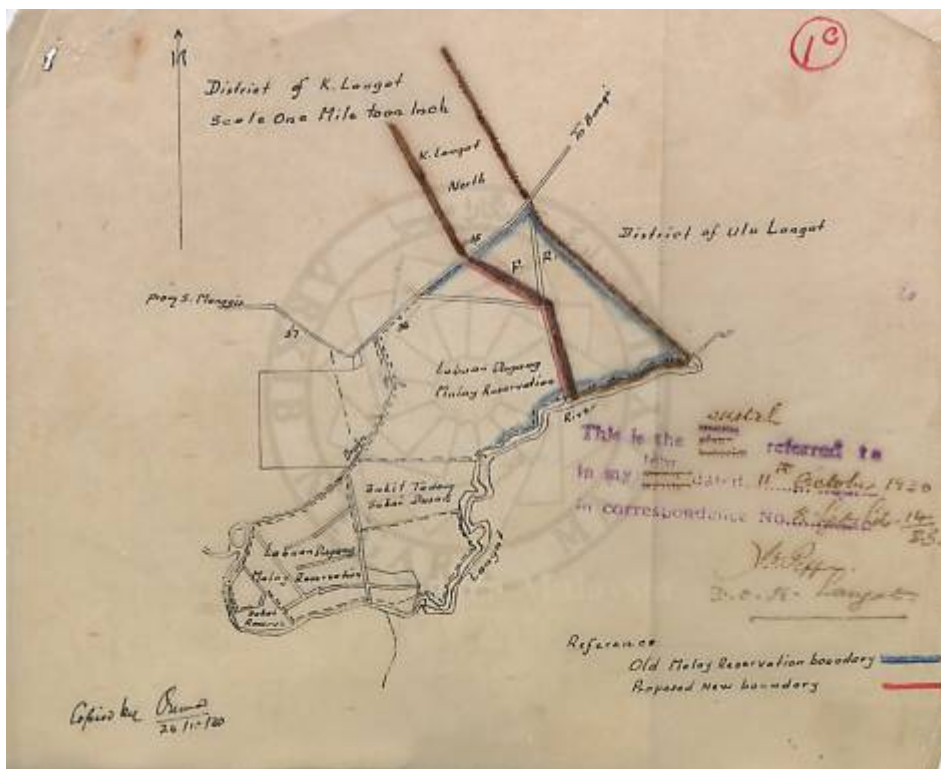 1c
District of K. Langat
Scale One Mile to an Inch
K. Langat
North
To Bangi
District of Ulu Langat
15
F. R.
From S. Manggis
37
36
Labuan Dagang
Malay Reservation
River
Bukit Tadong
Sakai
Langat
Labuan Dagang
Malay Reservation
Sakai
Reserve
This is the referred to
in my dated 11th October 1920
in correspondence No.
D.O. K. Langat
Reference
Old Malay Reservation boundary
Proposed New boundary
Copied by